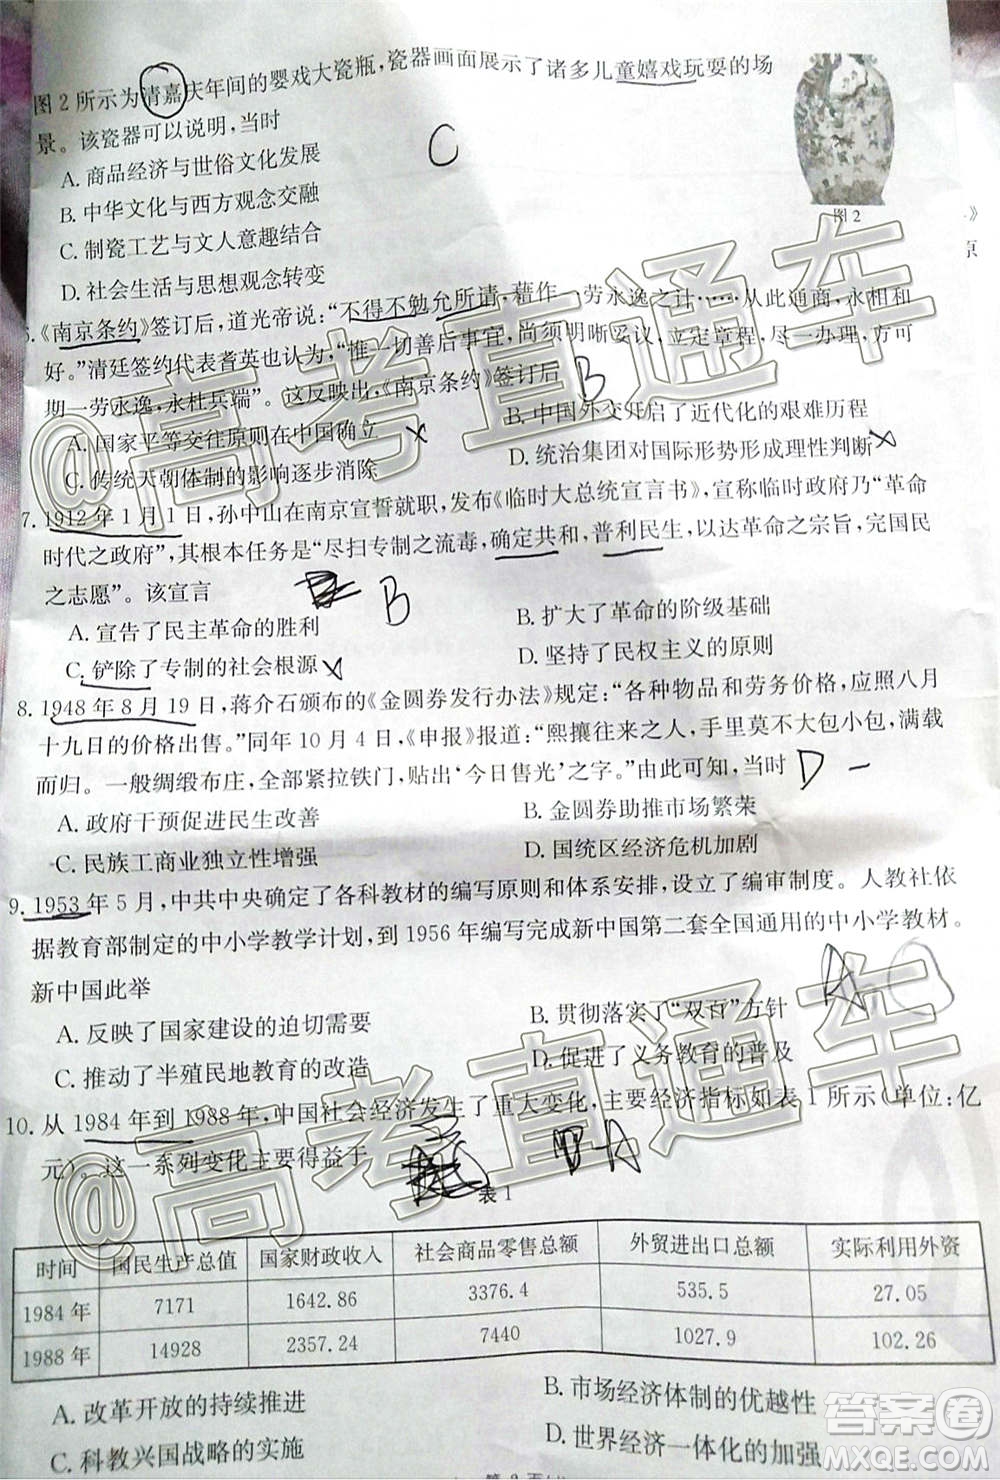 图2所示为清嘉庆年间的婴戏大瓷瓶，瓷器画面展示了诸多儿童嬉戏玩耍的场
景。该瓷器可以说明，当时
C
A. 商品经济与世俗文化发展
B. 中华文化与西方观念交融
C. 制瓷工艺与文人意趣结合
D. 社会生活与思想观念转变
图2
》
原
《南京条约》签订后，道光帝说：“不得不勉允所请，藉作一劳永逸之计……从此通商，永相和
好。”清廷签约代表耆英也认为：“惟一切善后事宜，尚须明晰妥议，立定章程，尽一办理，方可
期一劳永逸，永杜兵端”。这反映出，《南京条约》签订后
B
A. 国家平等交往原则在中国确立
B. 中国外交开启了近代化的艰难历程
C. 传统天朝体制的影响逐步消除
D. 统治集团对国际形势形成理性判断
7. 1912年1月1日，孙中山在南京宣誓就职，发布《临时大总统宣言书》，宣称临时政府乃“革命
时代之政府”，其根本任务是“尽扫专制之流毒，确定共和，普利民生，以达革命之宗旨，完国民
之志愿”。该宣言
B
A. 宣告了民主革命的胜利
B. 扩大了革命的阶级基础
C. 铲除了专制的社会根源
D. 坚持了民权主义的原则
8. 1948年8月19日，蒋介石颁布的《金圆券发行办法》规定：“各种物品和劳务价格，应照八月
十九日的价格出售。”同年10月4日，《申报》报道：“熙攘往来之人，手里莫不大包小包，满载
而归。一般绸缎布庄，全部紧拉铁门，贴出‘今日售光’之字。”由此可知，当时
D
A. 政府干预促进民生改善
B. 金圆券助推市场繁荣
C. 民族工商业独立性增强
D. 国统区经济危机加剧
9. 1953年5月，中共中央确定了各科教材的编写原则和体系安排，设立了编审制度。人教社依
据教育部制定的中小学教学计划，到1956年编写完成新中国第二套全国通用的中小学教材。
新中国此举
A
A. 反映了国家建设的迫切需要
B. 贯彻落实了“双百”方针
C. 推动了半殖民地教育的改造
D. 促进了义务教育的普及
10. 从1984年到1988年，中国社会经济发生了重大变化，主要经济指标如表1所示（单位：亿
元）。这一系列变化主要得益于
A
表1
时间 国民生产总值 国家财政收入 社会商品零售总额 外贸进出口总额 实际利用外资
1984年 7171 1642.86 3376.4 535.5 27.05
1988年 14928 2357.24 7440 1027.9 102.26
A. 改革开放的持续推进
B. 市场经济体制的优越性
C. 科教兴国战略的实施
D. 世界经济一体化的加强
@高考直通车
@高考直通车
答案圈
MXQE.COM